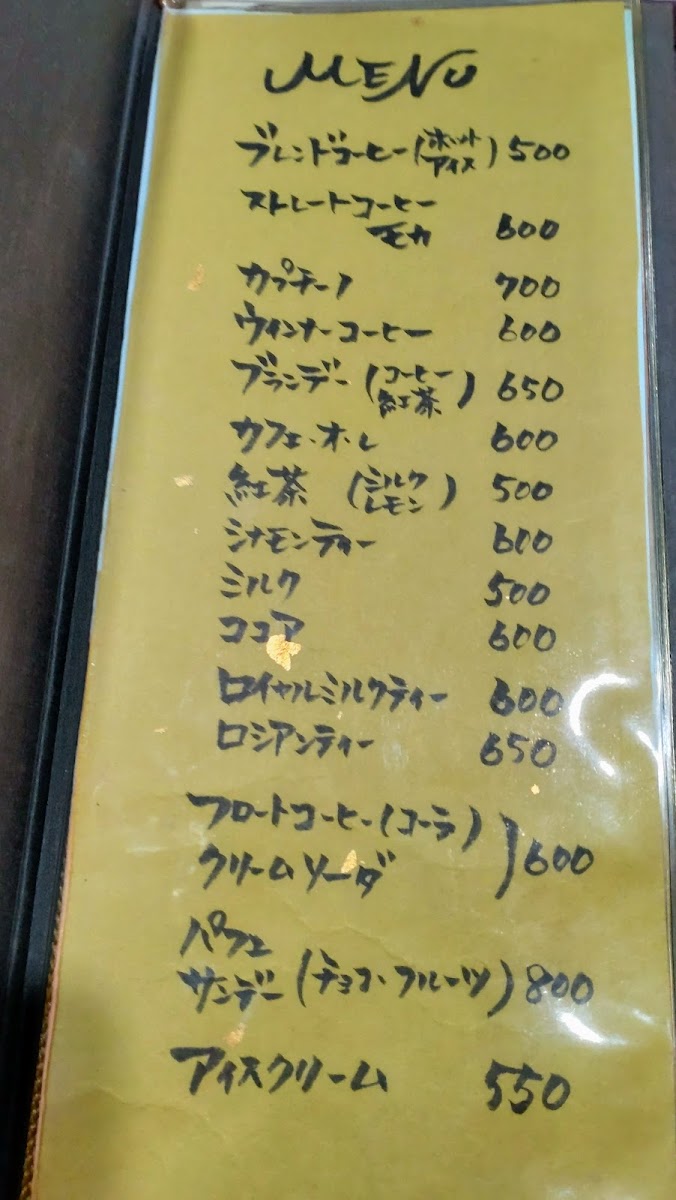 MENU
ブレンドコーヒー(ホット アイス) 500
ストレートコーヒー
モカ 600
カプチーノ 700
ウィンナーコーヒー 600
ブランデー(コーヒー 紅茶) 650
カフェ・オ・レ 600
紅茶 (ミルク レモン) 500
シナモンティー 600
ミルク 500
ココア 600
ロイヤルミルクティー 600
ロシアンティー 650
フロートコーヒー(コーラ)
クリームソーダ ) 600
パフェ
サンデー (チョコ・フルーツ) 800
アイスクリーム 550